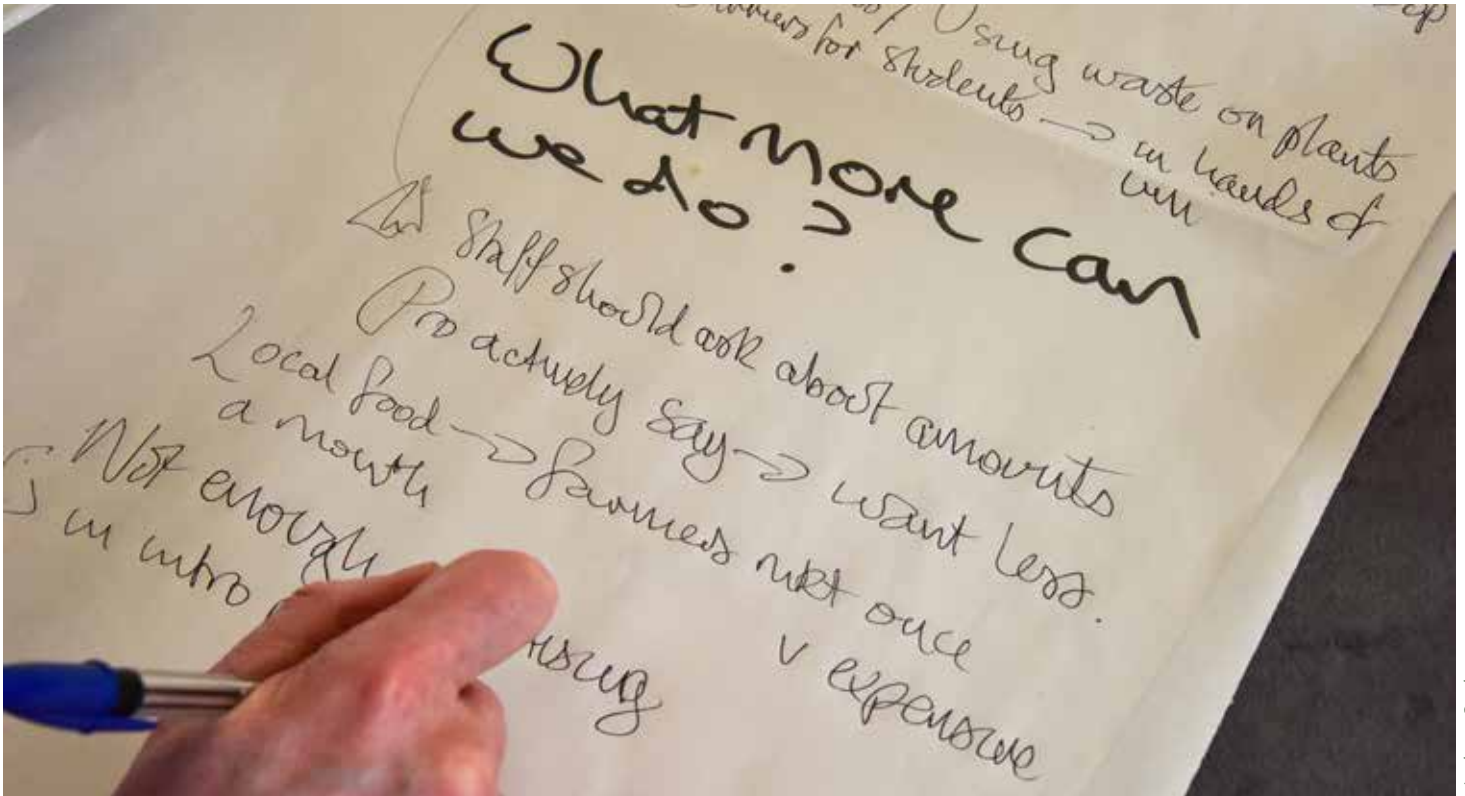 Using waste on plants
for students → in hands of
uni
What more can
we do?
Staff should ask about amounts
Proactively say → want less.
Local food → farmers mkt once
a month
v expensive
Not enough
in intro